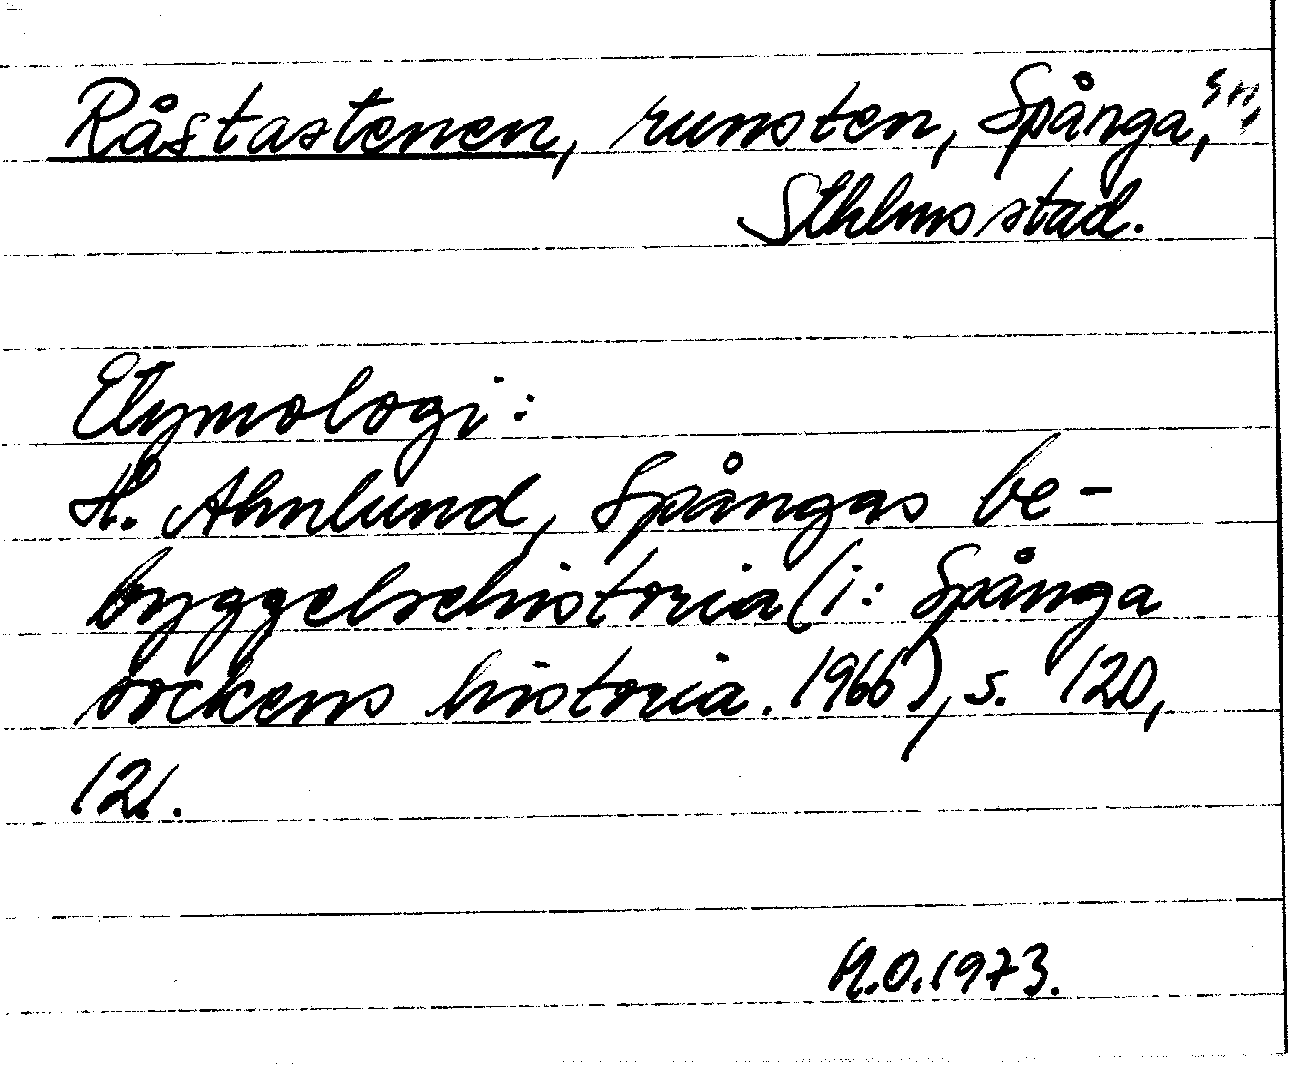 Råstastenen, runsten, Spånga, sn,
Sthlms stad.
Etymologi:
H. Ahnlund, Spångas be-
byggelsehistoria (i: Spånga
sockens historia. 1966), s. 120,
121.
M.O.1973.